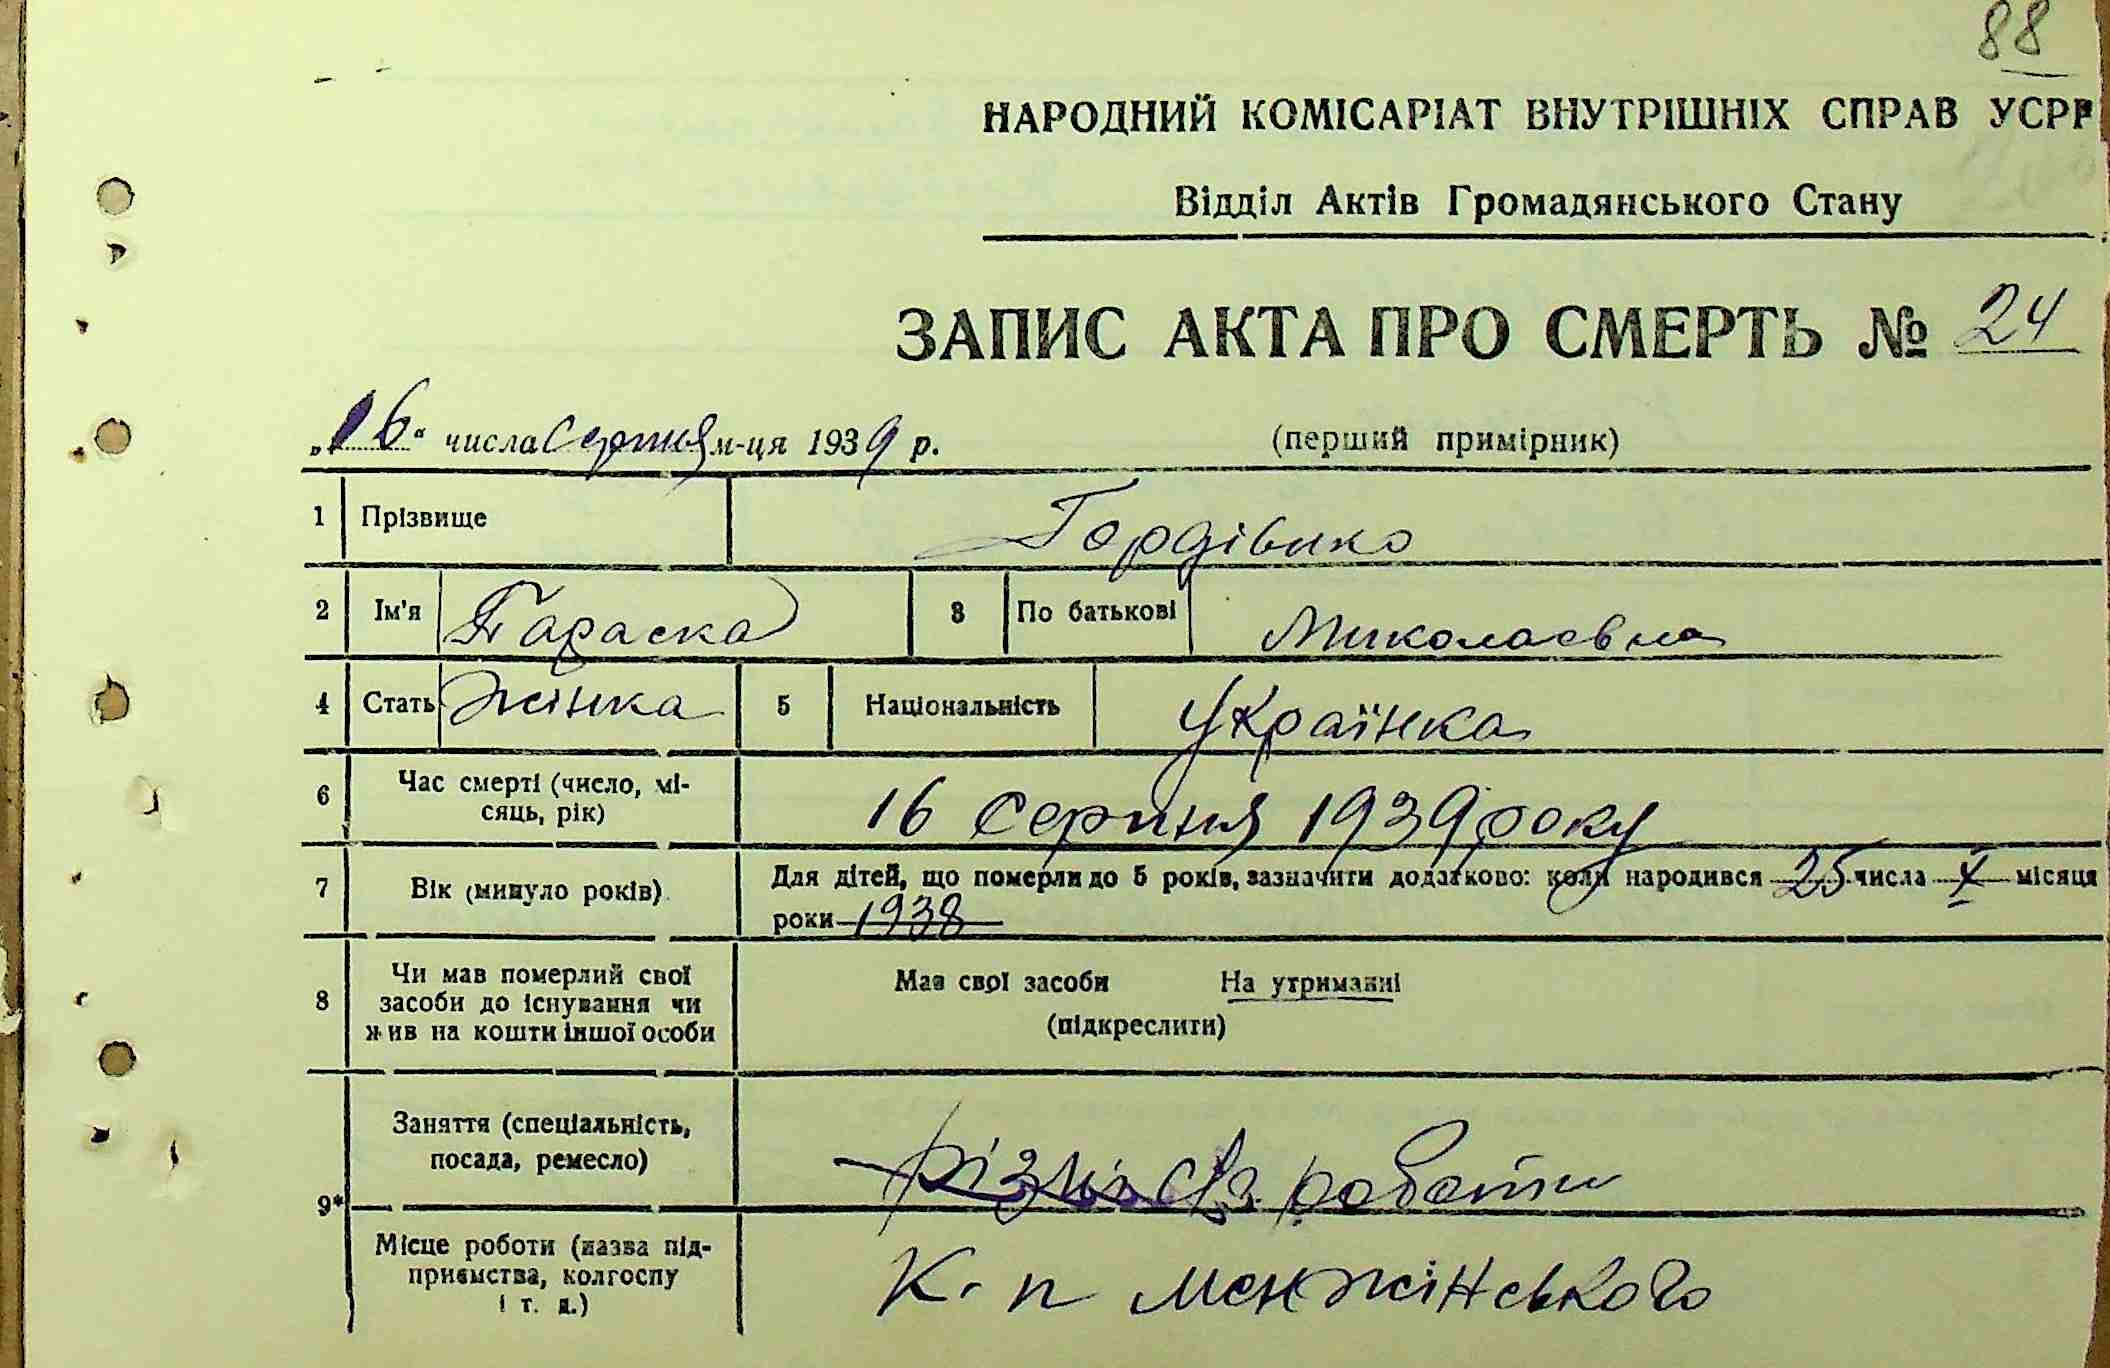 88
НАРОДНИЙ КОМІСАРІАТ ВНУТРІШНІХ СПРАВ УСРР
Відділ Актів Громадянського Стану
ЗАПИС АКТА ПРО СМЕРТЬ № 24
„16“ числа серпня м-ця 1939 р. (перший примірник)
1 Прізвище Гордівико
2 Ім'я Параска 3 По батькові Миколаєвна
4 Стать Жінка 5 Національність Українка
6 Час смерті (число, мі-
сяць, рік) 16 серпня 1939 року
7 Вік (минуло років) Для дітей, що померли до 5 років, зазначити додатково: коли народився 25 числа X місяця
роки 1938
8 Чи мав померлий свої
засоби до існування чи
жив на кошти іншої особи
Мав свої засоби На утриманні
(підкреслити)
9* Заняття (спеціальність,
посада, ремесло) різні роботи
Місце роботи (назва під-
приємства, колгоспу
і т. д.) К-п Менжінського